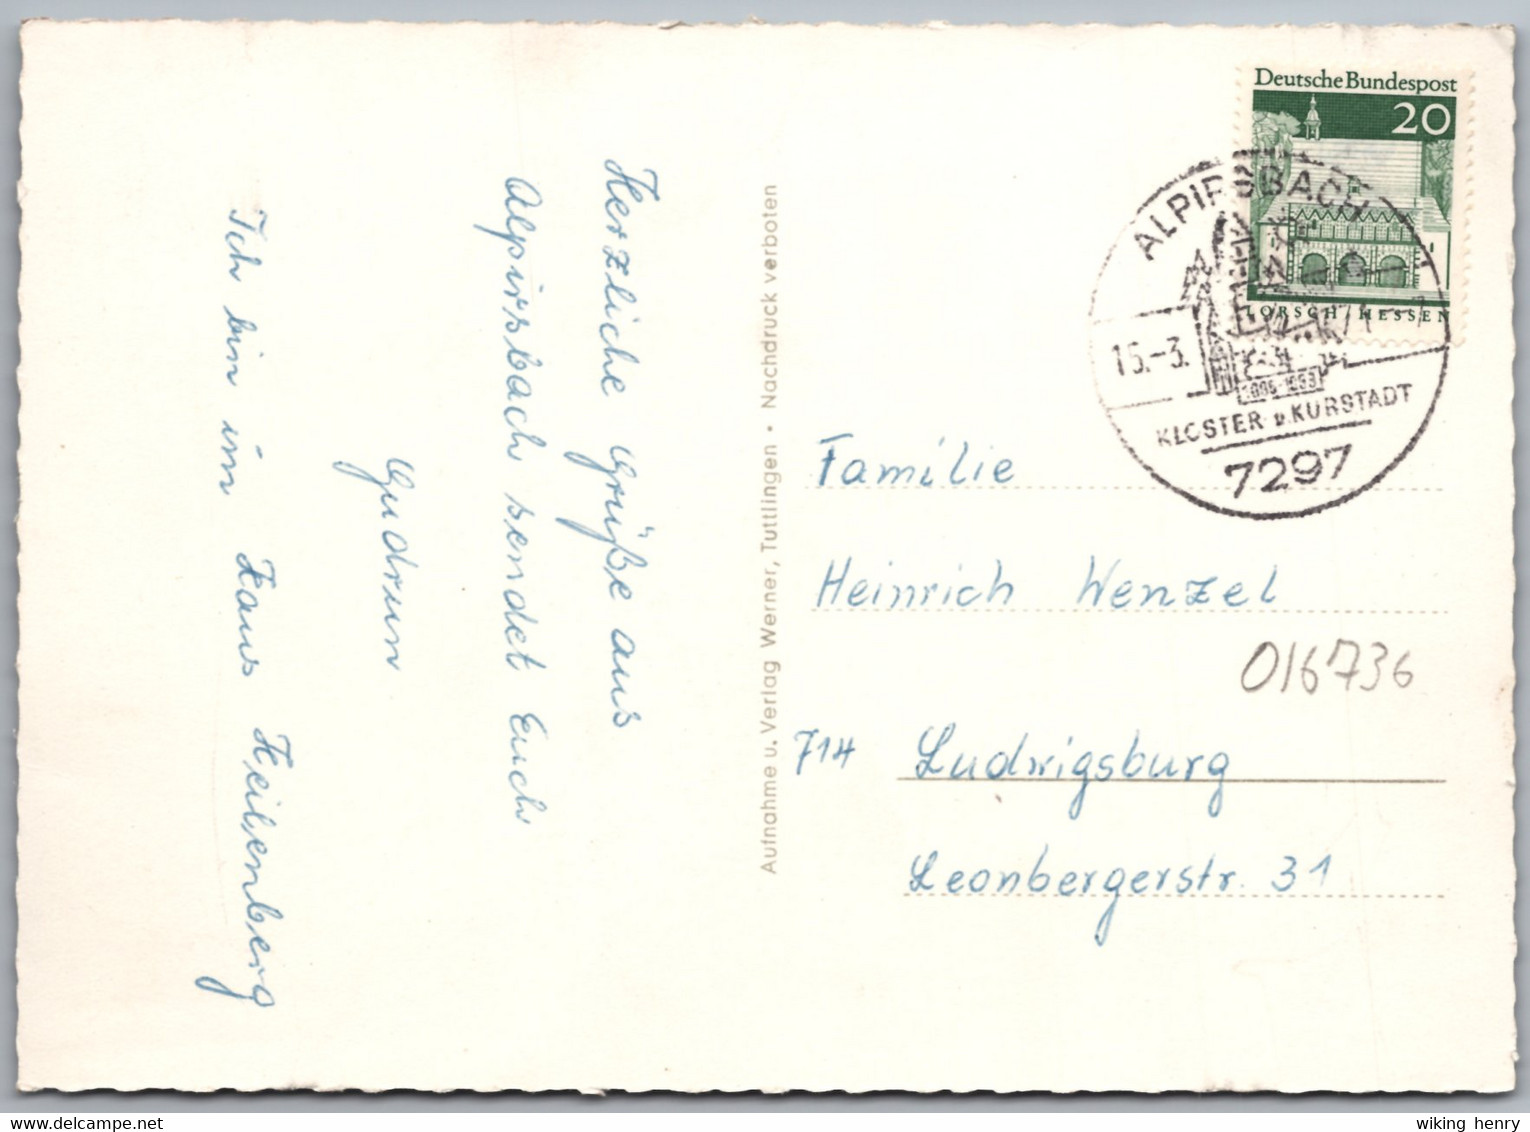 Herzliche Grüße aus
Alpirsbach sendet Euch
Gudrun
Ich bin im Haus Heilenberg
Aufnahme u. Verlag Werner, Tuttlingen • Nachdruck verboten
Deutsche Bundespost
20
LORSCH / HESSEN
ALPIRSBACH
15.-3.
KLOSTER u. KURSTADT
7297
Familie
Heinrich Wenzel
016736
714 Ludwigsburg
Leonbergerstr. 31
wiking henry